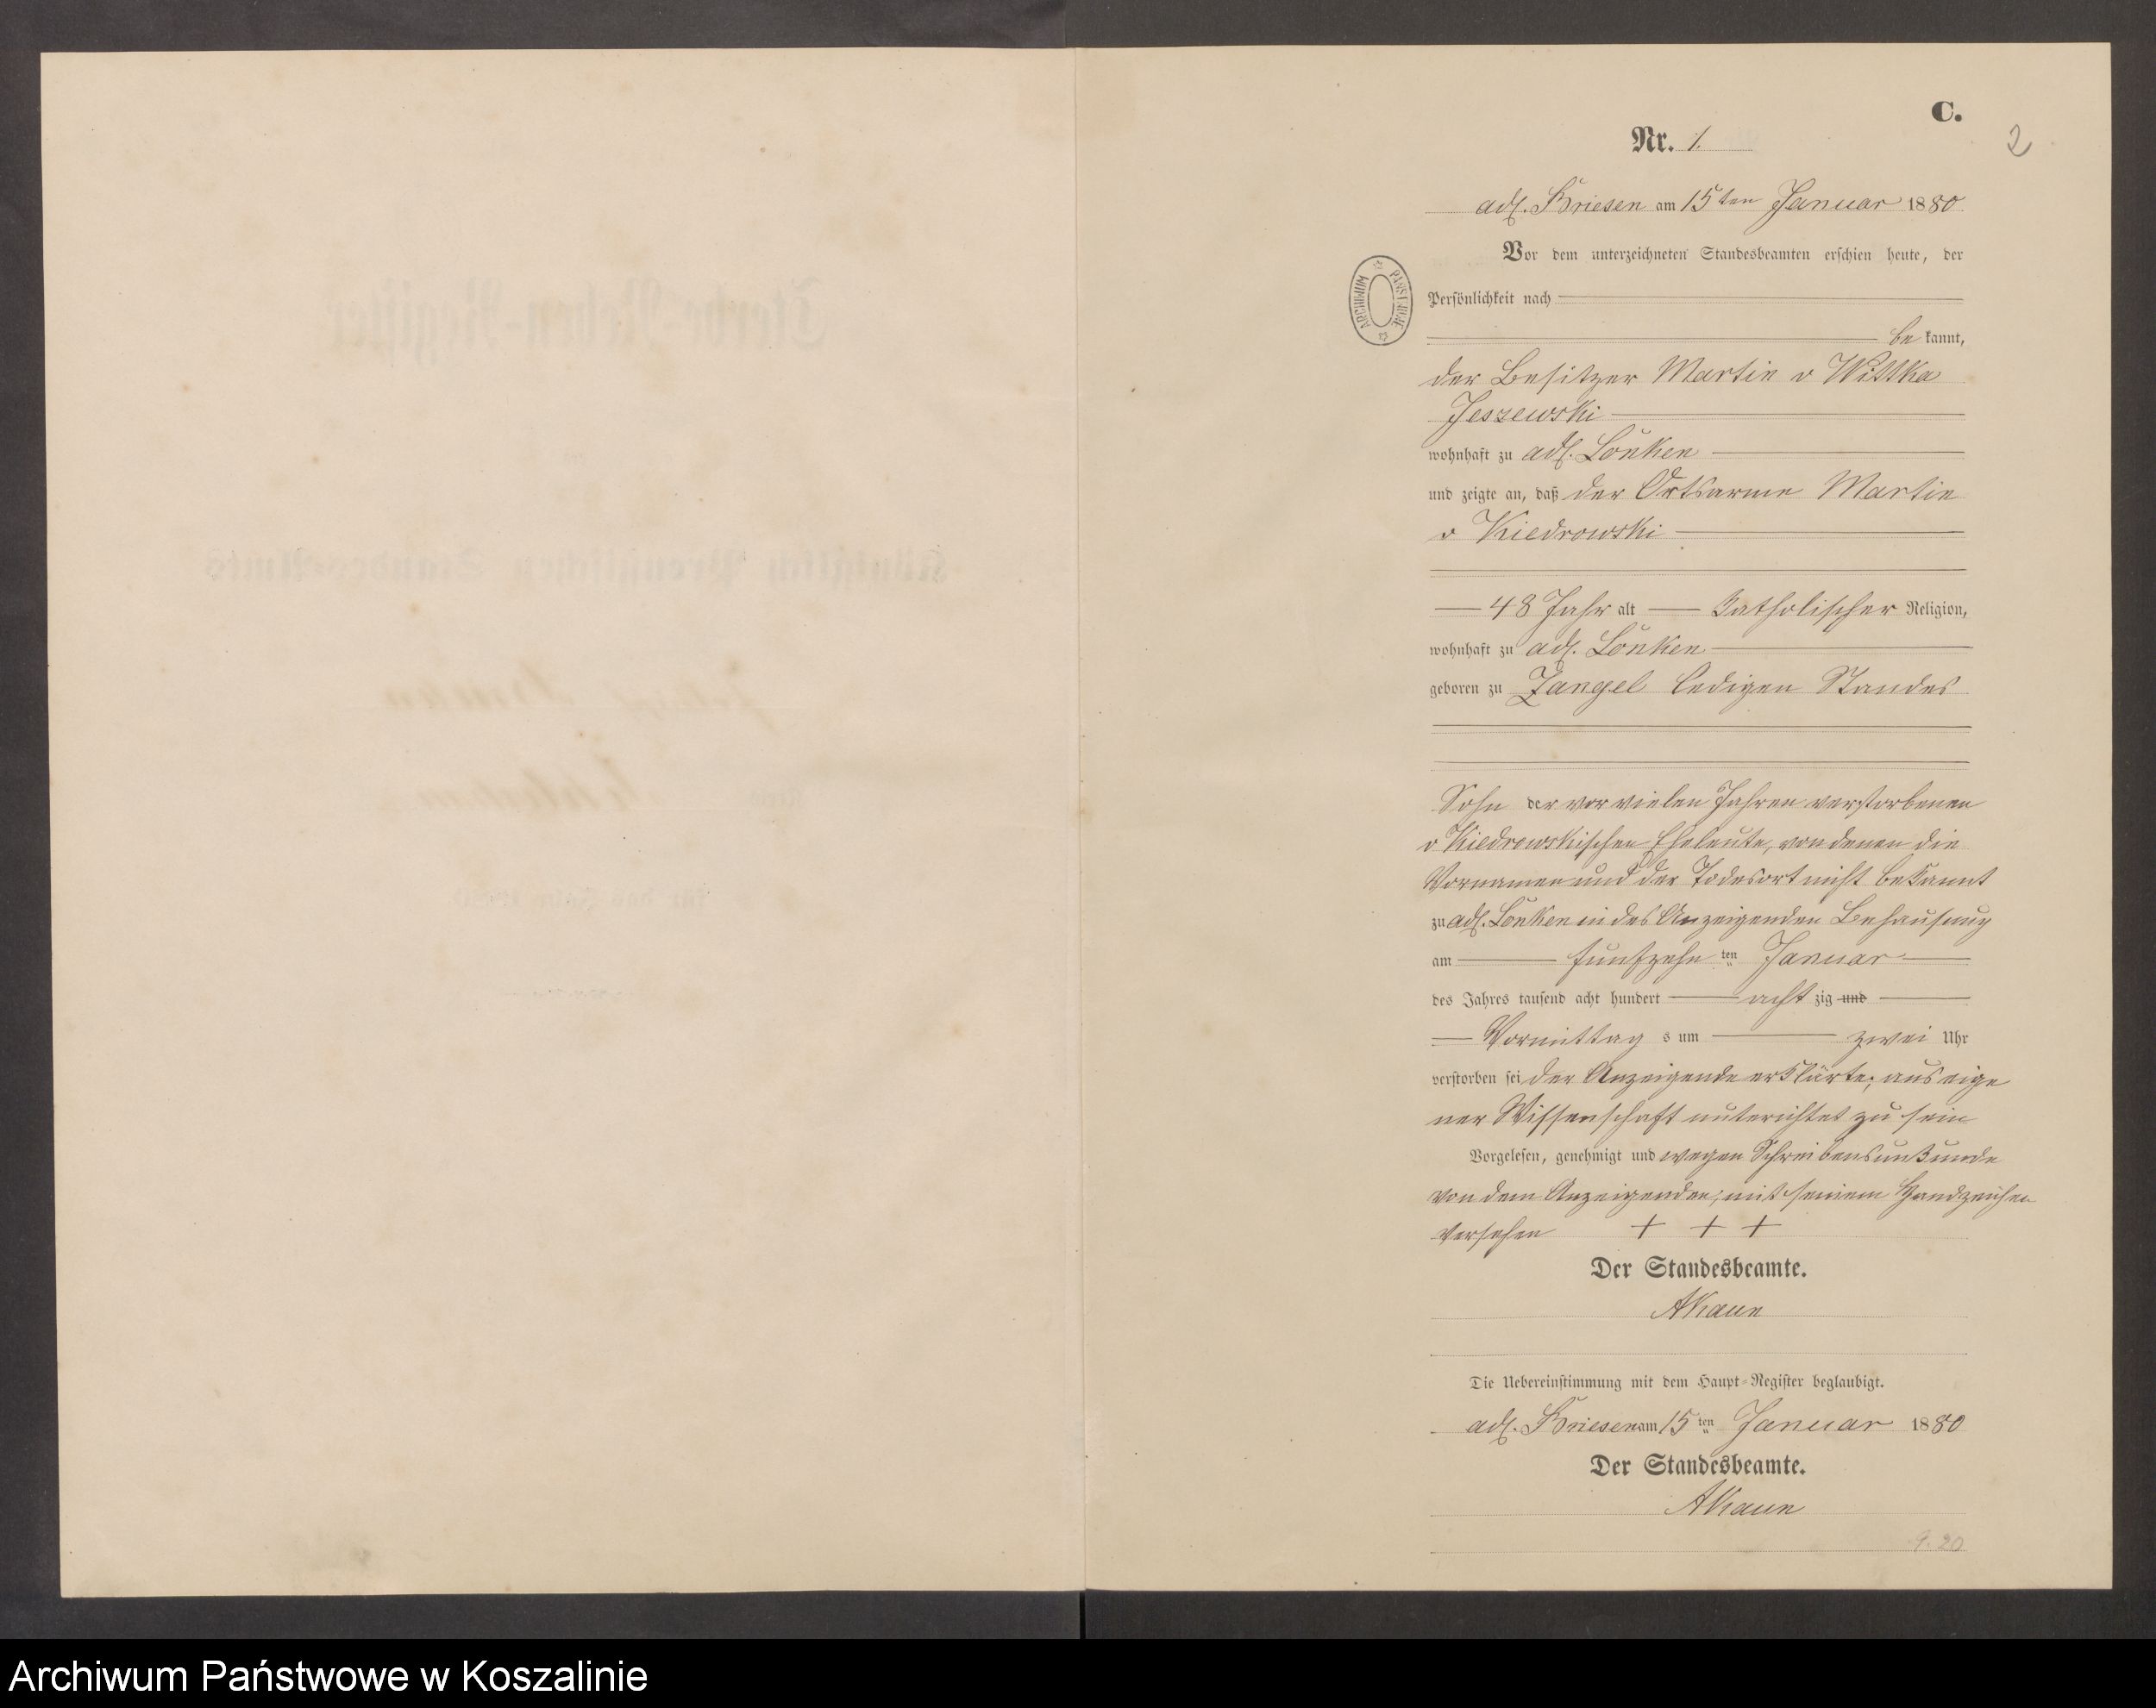 Sterbe-Neben-Register
Königlich Preußischen Standes-Amts
C.
Nr. 1.
2
adl. Briesen am 15ten Januar 1880
Vor dem unterzeichneten Standesbeamten erschien heute, der
Persönlichkeit nach
be kannt,
der Besitzer Martin v Wittka
Jeszewski
wohnhaft zu adl. Lonken
und zeigte an, daß der Ortsarme Martin
v Kiedrowski
48 Jahr alt katholischer Religion,
wohnhaft zu adl. Lonken
geboren zu Zangel ledigen Standes
Sohn der vor vielen Jahren verstorbenen
v Kiedrowskischen Eheleute, von denen die
Vornamen und der Todesort nicht bekannt
zu adl. Lonken in des Anzeigenden Behausung
am funfzehn ten Januar
des Jahres tausend acht hundert acht zig und
Vormittag s um zwei Uhr
verstorben sei der Anzeigende erklärte, aus eige
ner Wissenschaft unterichtet zu sein
Vorgelesen, genehmigt und wegen Schreibensunkunde
von dem Anzeigenden, mit seinem Handzeichen
versehen + + +
Der Standesbeamte.
AKaun
Die Uebereinstimmung mit dem Haupt-Register beglaubigt.
adl. Briesen am 15 ten Januar 1880
Der Standesbeamte.
AKaun
9.20
ARCHIWUM PAŃSTWOWE
Archiwum Państwowe w Koszalinie